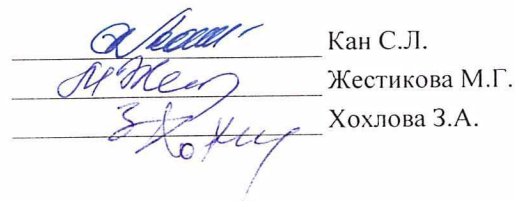 Кан С.Л.
Жестикова М.Г.
Хохлова З.А.